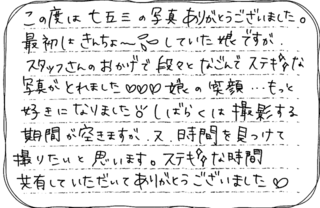 この度は七五三の写真ありがとうございました。
最初はきんちょ〜していた娘ですが、
スタッフさんのおかげで段々となごんでステキな
写真がとれました♡♡♡娘の笑顔…もっと
好きになりました しばらくは撮影する
期間が空きますが、又、時間を見つけて
撮りたいと思います。ステキな時間
共有していただいてありがとうございました♡